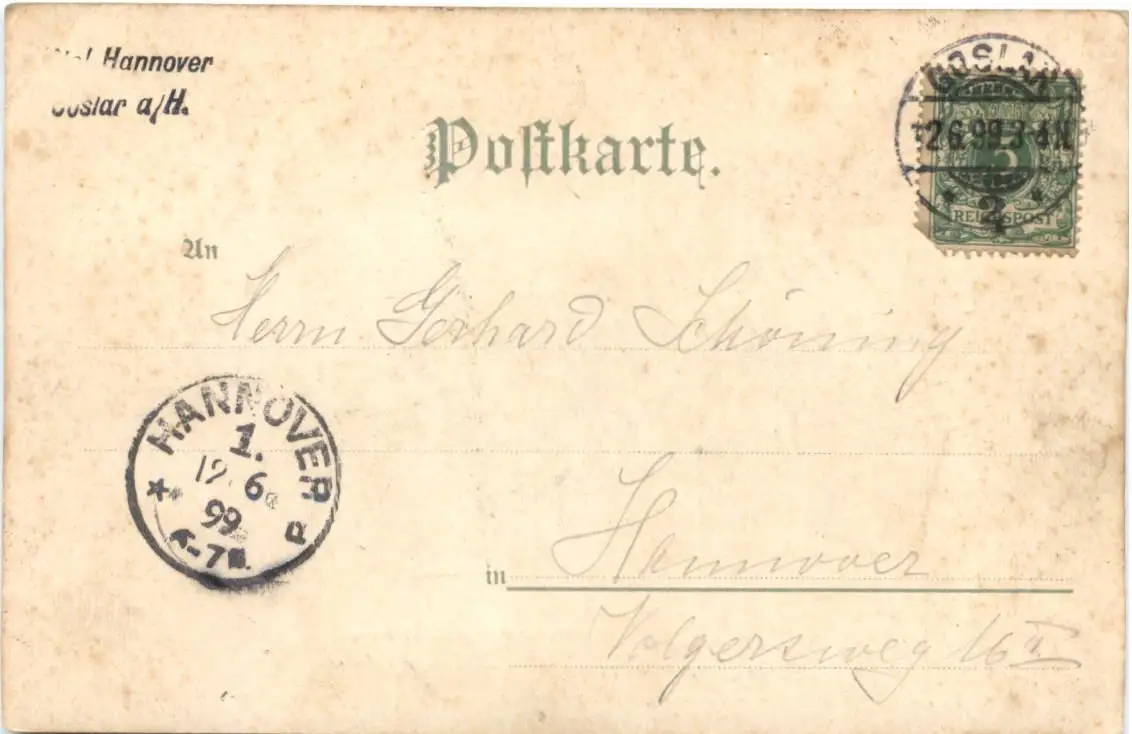 Hannover
Goslar a/H.
GOSLAR
12.6.99.3-4N
5
REICHSPOST
2
Postkarte.
An
Herrn Gerhard Schöning
HANNOVER
1.
12.6.
99
6-7N.
P
in Hannover
Volgersweg 16 I